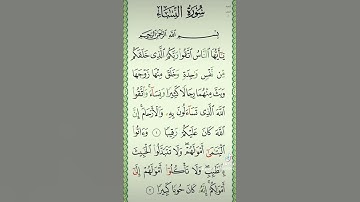 سُورَةُ النِّسَاءِ
بِسْمِ اللَّهِ الرَّحْمَٰنِ الرَّحِيمِ
يَٰٓأَيُّهَا النَّاسُ اتَّقُوا رَبَّكُمُ الَّذِي خَلَقَكُم
مِّن نَّفْسٍ وَٰحِدَةٍ وَخَلَقَ مِنْهَا زَوْجَهَا
وَبَثَّ مِنْهُمَا رِجَالًا كَثِيرًا وَنِسَآءً ۚ وَاتَّقُوا
اللَّهَ الَّذِي تَسَآءَلُونَ بِهِۦ وَالْأَرْحَامَ ۚ إِنَّ
اللَّهَ كَانَ عَلَيْكُمْ رَقِيبًا ١ وَءَاتُوا
الْيَتَٰمَىٰٓ أَمْوَٰلَهُمْ ۖ وَلَا تَتَبَدَّلُوا الْخَبِيثَ
بِالطَّيِّبِ ۖ وَلَا تَأْكُلُوٓا أَمْوَٰلَهُمْ إِلَىٰٓ
أَمْوَٰلِكُمْ ۚ إِنَّهُۥ كَانَ حُوبًا كَبِيرًا ٢